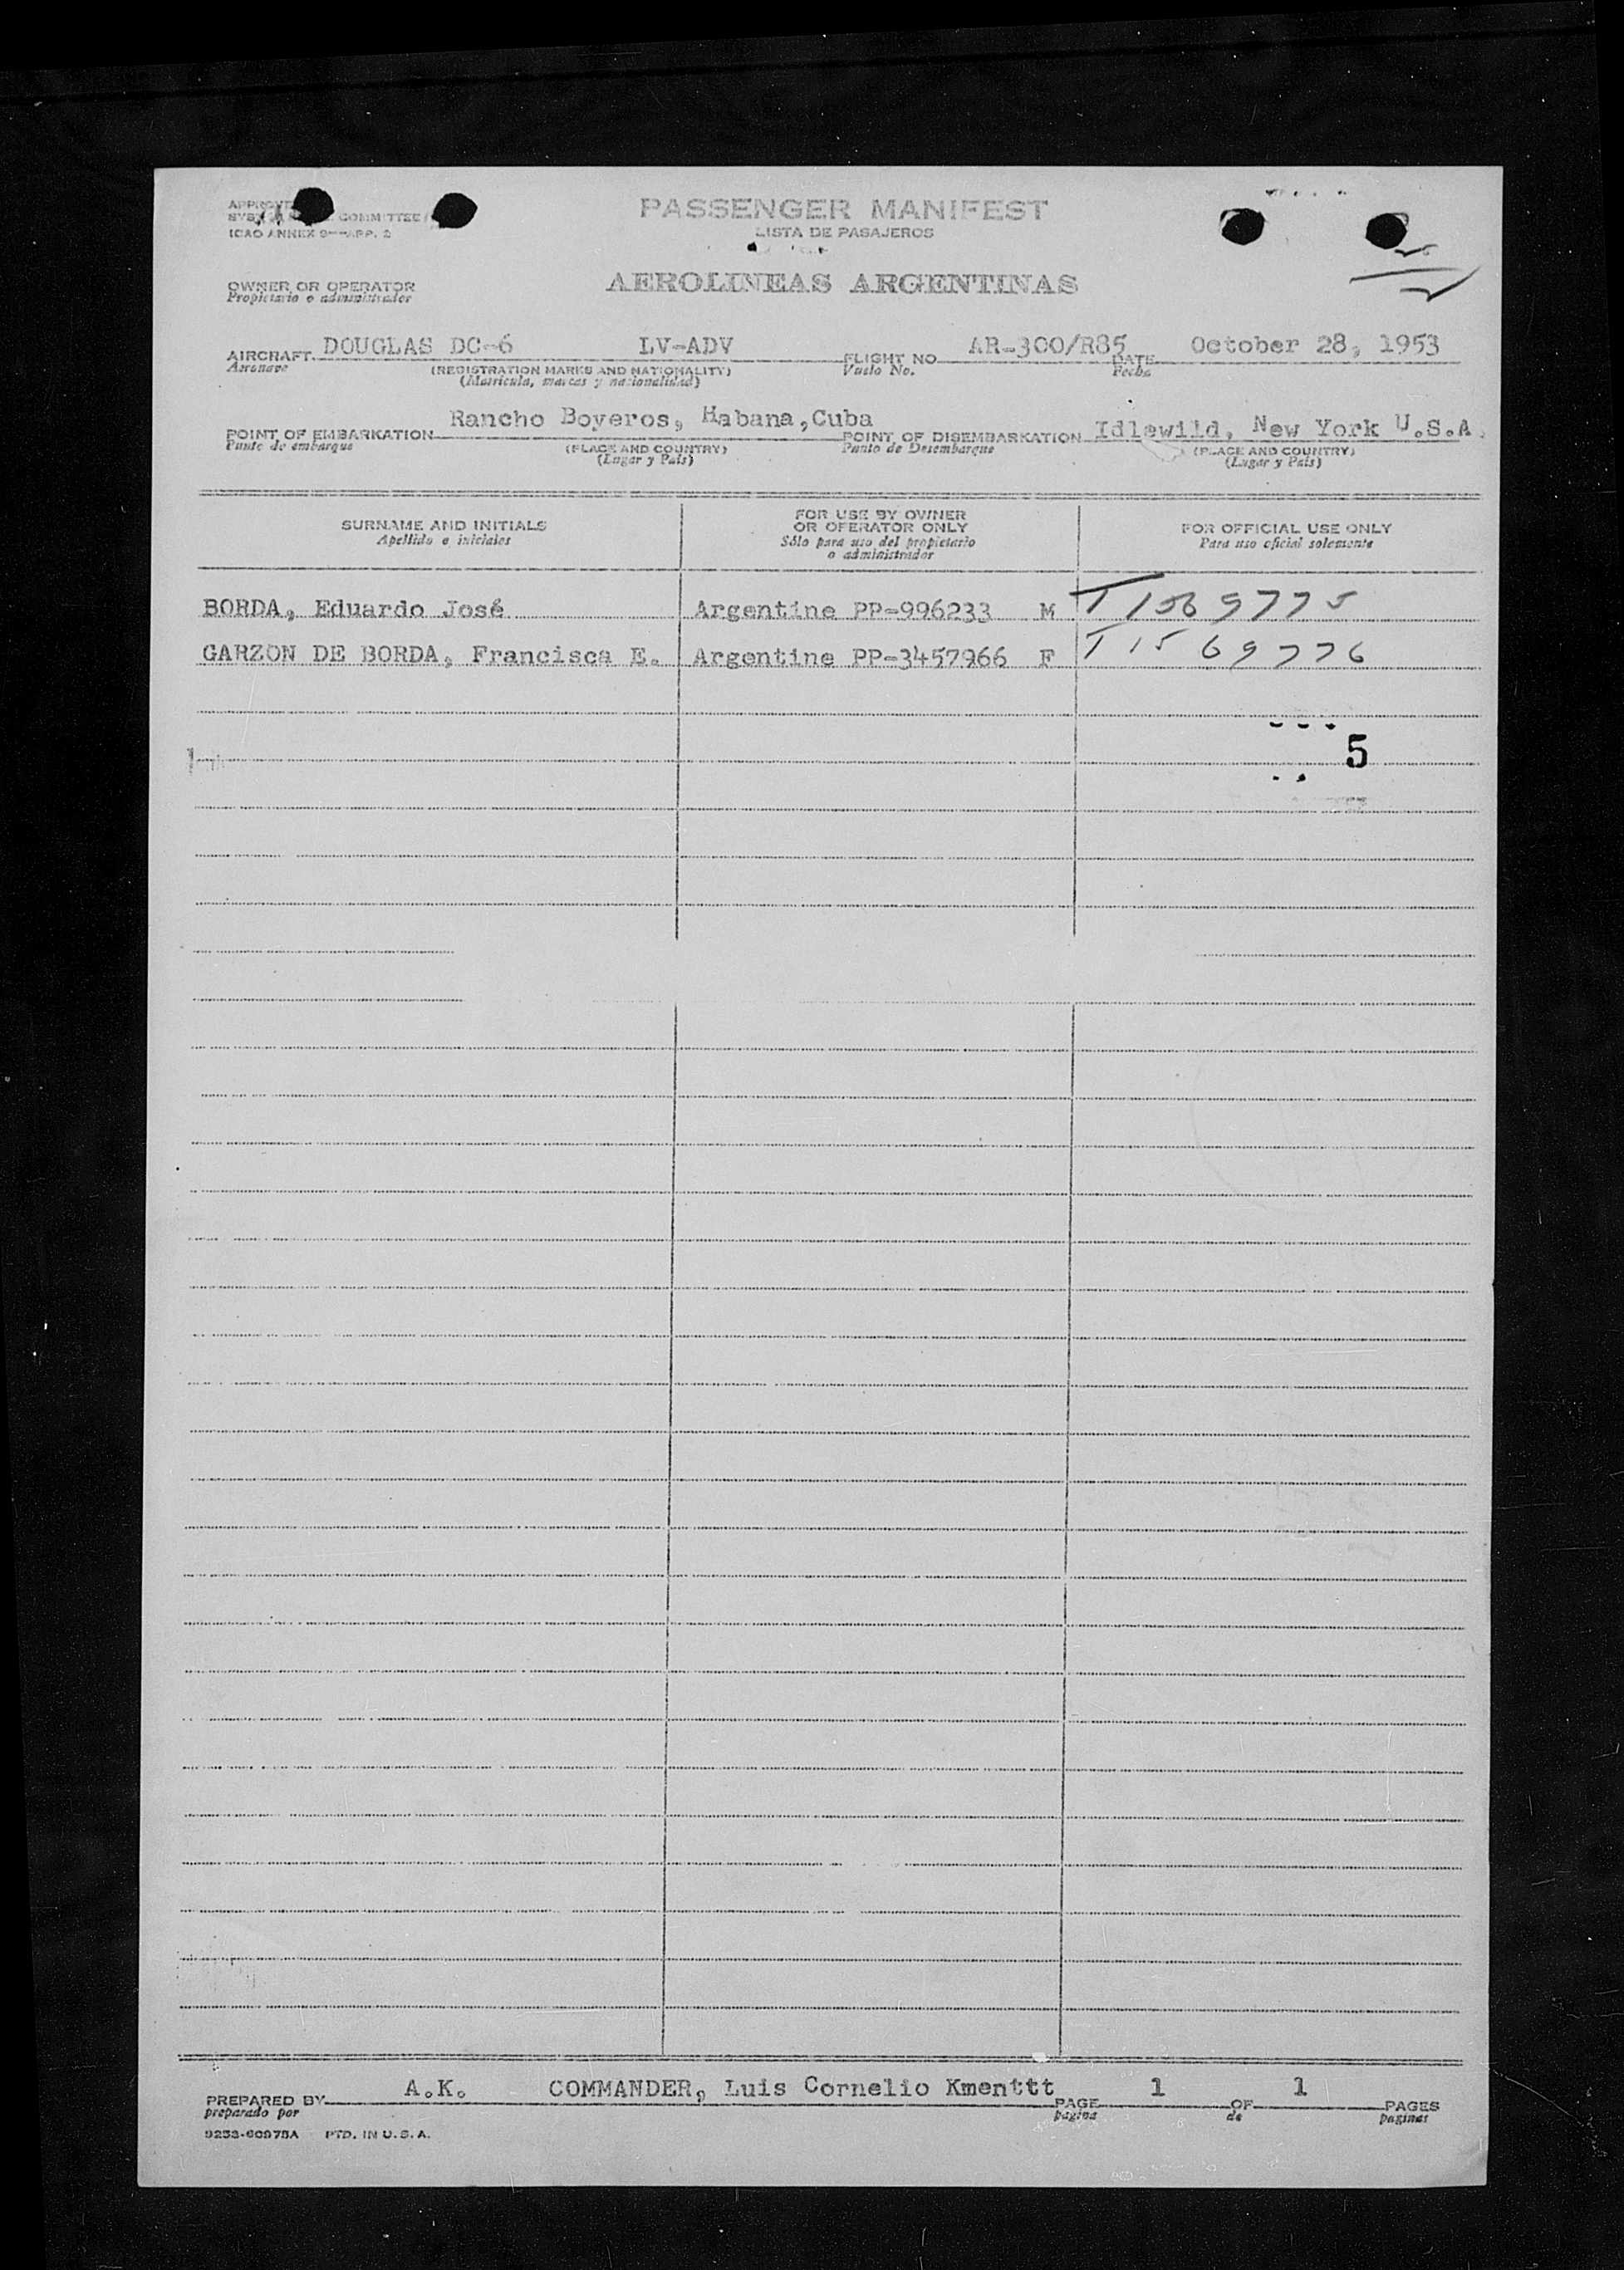 PASSENGER MANIFEST
LISTA DE PASAJEROS
COMMITTEE
ICAO ANNEX 9—APP. 2
OWNER OR OPERATOR
Propietario o administrador
AEROLINEAS ARGENTINAS
AIRCRAFT DOUGLAS DC-6 LV-ADV FLIGHT NO. AR-300/R85 DATE October 28, 1953
Aeronave (REGISTRATION MARKS AND NATIONALITY) Vuelo No. Fecha
(Matrícula, marcas y nacionalidad)
POINT OF EMBARKATION Rancho Boyeros, Habana,Cuba POINT OF DISEMBARKATION Idlewild, New York U.S.A.
Punto de embarque (PLACE AND COUNTRY) Punto de Desembarque (PLACE AND COUNTRY)
(Lugar y País) (Lugar y País)
SURNAME AND INITIALS
Apellido e iniciales
FOR USE BY OWNER
OR OPERATOR ONLY
Sólo para uso del propietario
o administrador
FOR OFFICIAL USE ONLY
Para uso oficial solemente
BORDA, Eduardo José Argentine PP-996233 M T1569775
GARZON DE BORDA, Francisca E. Argentine PP-3457966 F T1569776
5
PREPARED BY A.K. COMMANDER, Luis Cornelio Kmenttt PAGE 1 OF 1 PAGES
preparado por pagina de paginas
9253-60975A PTD. IN U.S.A.